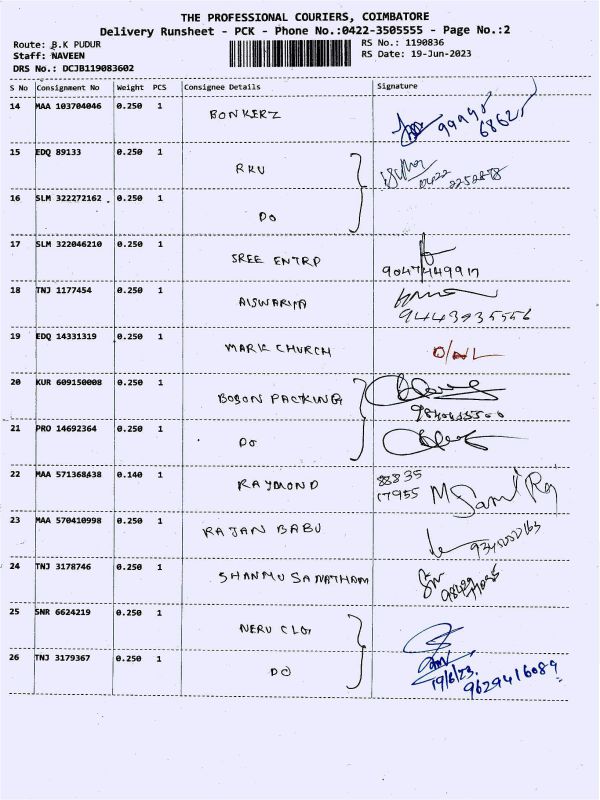 THE PROFESSIONAL COURIERS, COIMBATORE
Delivery Runsheet - PCK - Phone No.:0422-3505555 - Page No.:2
Route: B.K PUDUR RS No.: 1190836
Staff: NAVEEN RS Date: 19-Jun-2023
DRS No.: DCJB119083602
S No Consignment No Weight PCS Consignee Details Signature
14 MAA 103704046 0.250 1 BONKERZ 99995
68625
15 EDQ 89133 0.250 1 RKV 0422 2252878
16 SLM 322272162 0.250 1 DO
17 SLM 322046210 0.250 1 SREE ENTRP
18 TNJ 1177454 0.250 1 AISWARIYA
9443935556
19 EDQ 14331319 0.250 1 MARK CHURCH D/NL
20 KUR 609150008 0.250 1 BOSON PACKING
21 PRO 14692364 0.250 1 DO
22 MAA 571368438 0.140 1 RAYMOND 88835
17955
23 MAA 570410998 0.250 1 RAJAN BABU
24 TNJ 3178746 0.250 1 SHANMU SANATHAM
25 SNR 6624219 0.250 1 NERU CLOT
26 TNJ 3179367 0.250 1 DO
19/6/23.
9629416089